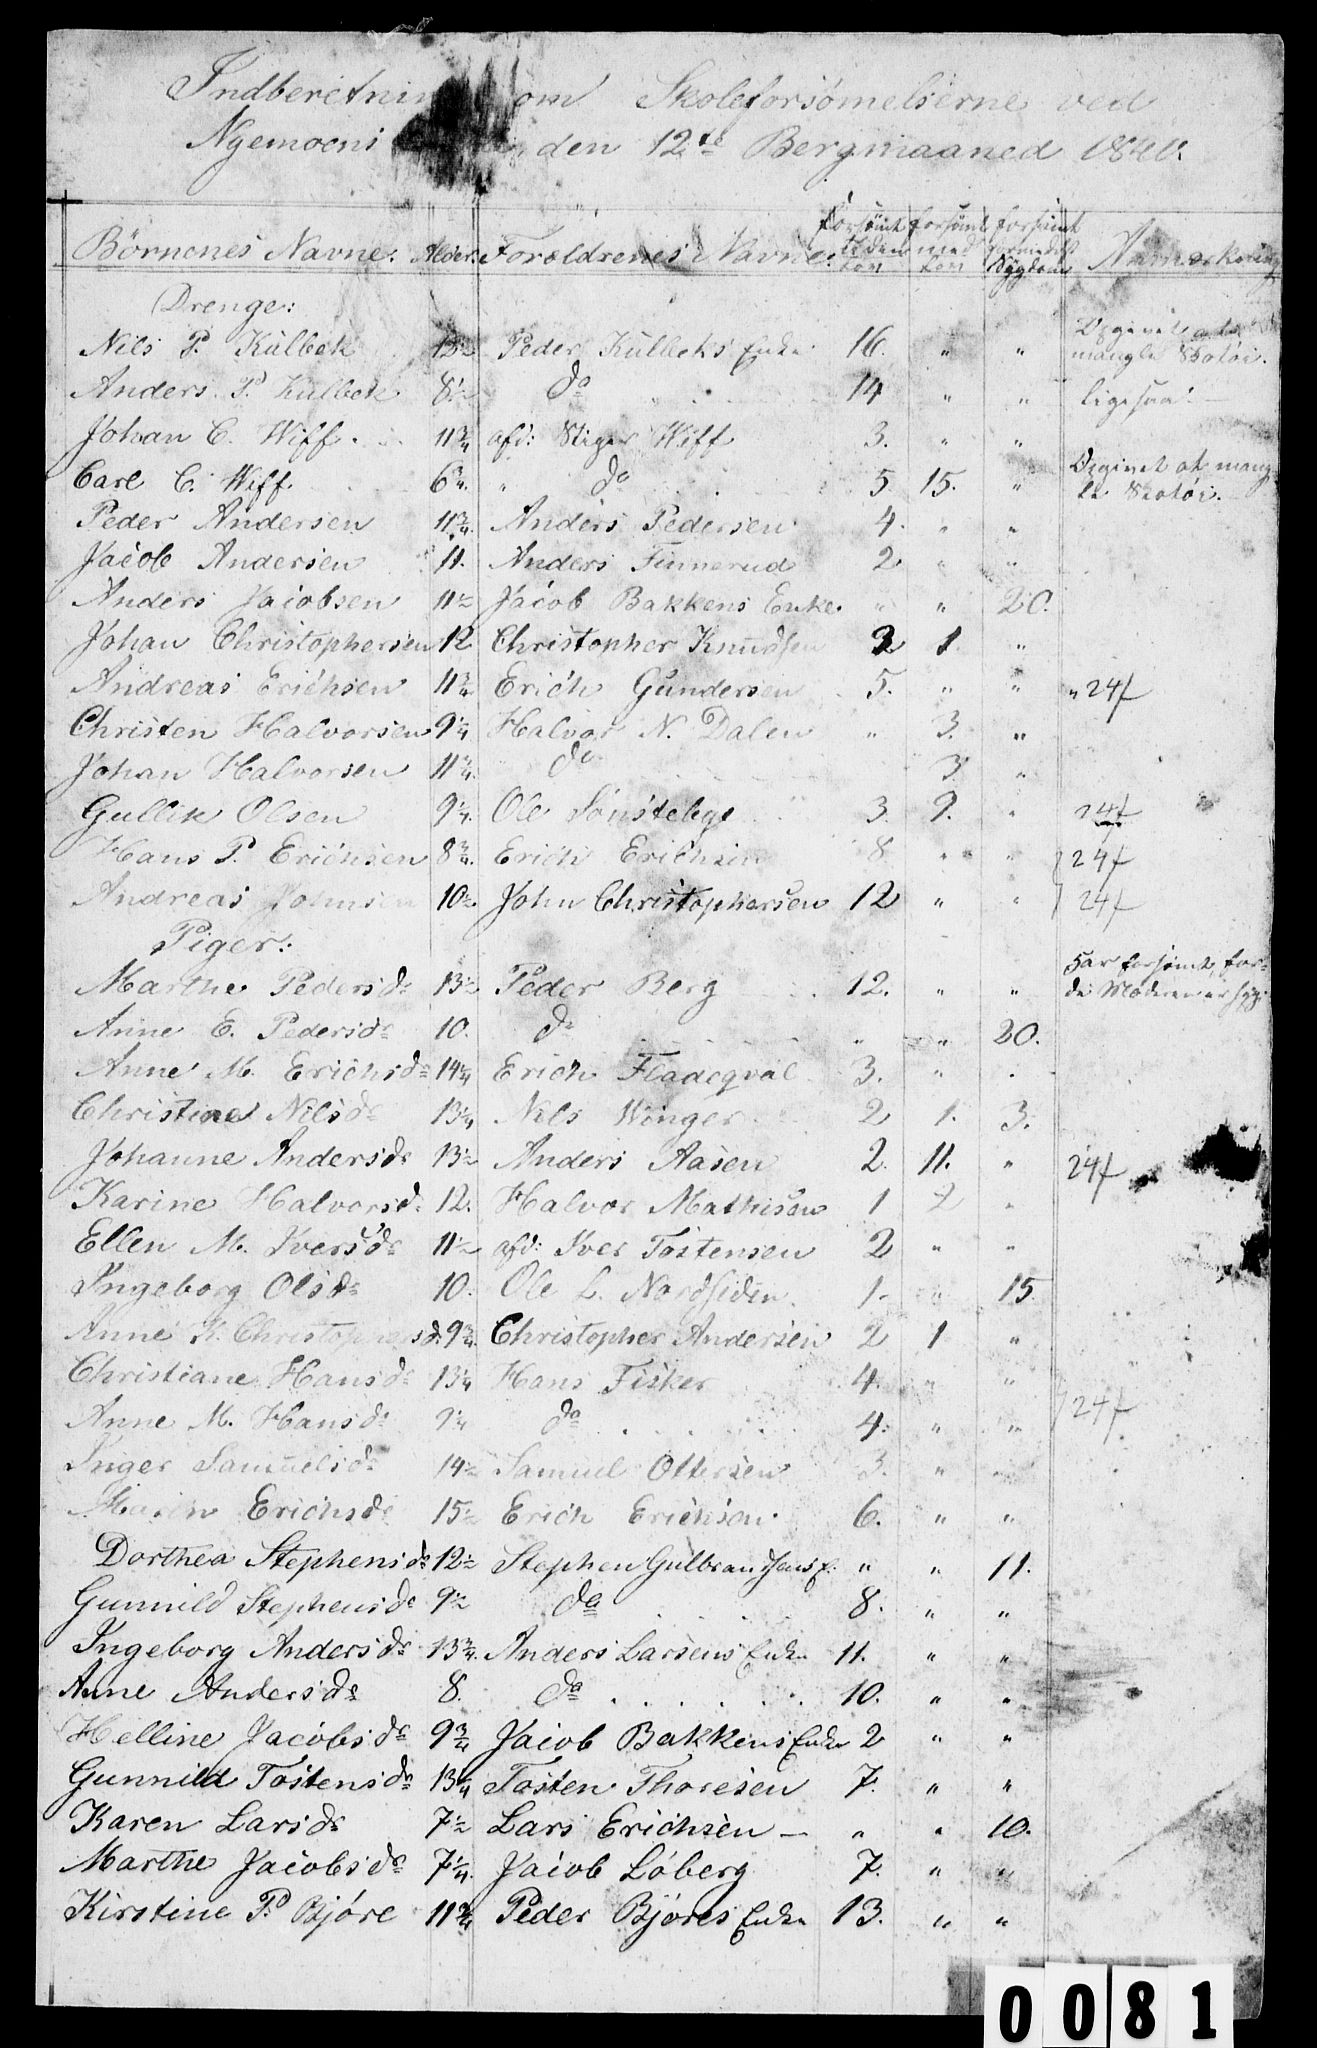 Indberetnin om Skoleforsömelserne ved
Nyemoens den 12te Bergmaaned 1841.
Börnenes Navne. Alder. Foreldrenes Navne. Forsömt uden lov forsömt med lov forsömt formedelst Sygdom Anmerkning
Drenge:
Nils P. Külbek 13½ Peder Külbeks Enke 16. " " Opgivet at mangle Skotöi.
Anders P. Külbek 8½ do 14 " " ligesaa
Johan C. Wiff 11¾ afd: Stiger Wiff 3. " "
Carl C. Wiff 6¾ " do 5 15. " Opgivet at mangle Skotöi.
Peder Andersen 11¾ Anders Pedersen 4. " "
Jacob Andersen 11. Anders Finnerud 2 " "
Anders Jacobsen 11½ Jacob Bakkens Enke. " " 20.
Johan Christophersen 12 Christopher Knudsen 2 1. "
Andreas Erichsen 11¾ Erich Gundersen 5. " " " 24 f
Christen Halvorsen 9¼ Halvor N. Dalen " 3. "
Johan Halvorsen 11¾ do 3 "
Gullik Olsen 9¼ Ole Sönstebye 3. 9. " 24 f
Hans P. Erichsen 8¾ Erich Erichsen 8 " " 24 f
Andreas Johnsen 10½ John Christophersen 12 " " 24 f
Piger:
Marthe Pedersdr 13½ Peder Berg 12. " " har forsömt, fordi Moderen er syg.
Anne E. Pedersdr 10. do " " 20.
Anne M. Erichsdr 14¼ Erich Fladeqval 3. " "
Christine Nilsdr 13¼ Nils Winger 2 1. 3.
Johanne Andersdr 13½ Anders Aasen 2. 11. " 24 f
Karine Halvorsdr 12. Halvor Mathisen 1 2 "
Ellen M. Iversdr 11½ afd: Iver Tostensen 2 " "
Ingeborg Olsdr 10. Ole L. Nordsiden. 1. " 15
Anne K. Christophersd. 9¾ Christopher Andersen 2 1 "
Christiane Hansdr 13¼ Hans Fisker 4. " "
Anne M. Hansdr 9¼ do 4. " " 24 f
Inger Samuelsdr 14½ Samuel Ottersen 3. " "
Maren Erichsdr 15½ Erich Erichsen. 6. " "
Dorthea Stephensdr 12½ Stephen Gulbrandsens E. " " 11.
Gunnild Stephensdr 9½ do 8. " "
Ingeborg Andersdr 13¾ Anders Larsens Enke 11. " "
Anne Andersdr 8. do 10. " "
Helline Jacobsdr 9¾ Jacob Bakkens Enke 2 " "
Gunnild Tostensdr 13¼ Tosten Thoresen 7. " "
Karen Larsdr 7½ Lars Erichsen — " " 10.
Marthe Jacobsdr 7¼ Jacob Löberg 7. " "
Kirstine P. Björe 11¾ Peder Björes Enke 13. " "
0081